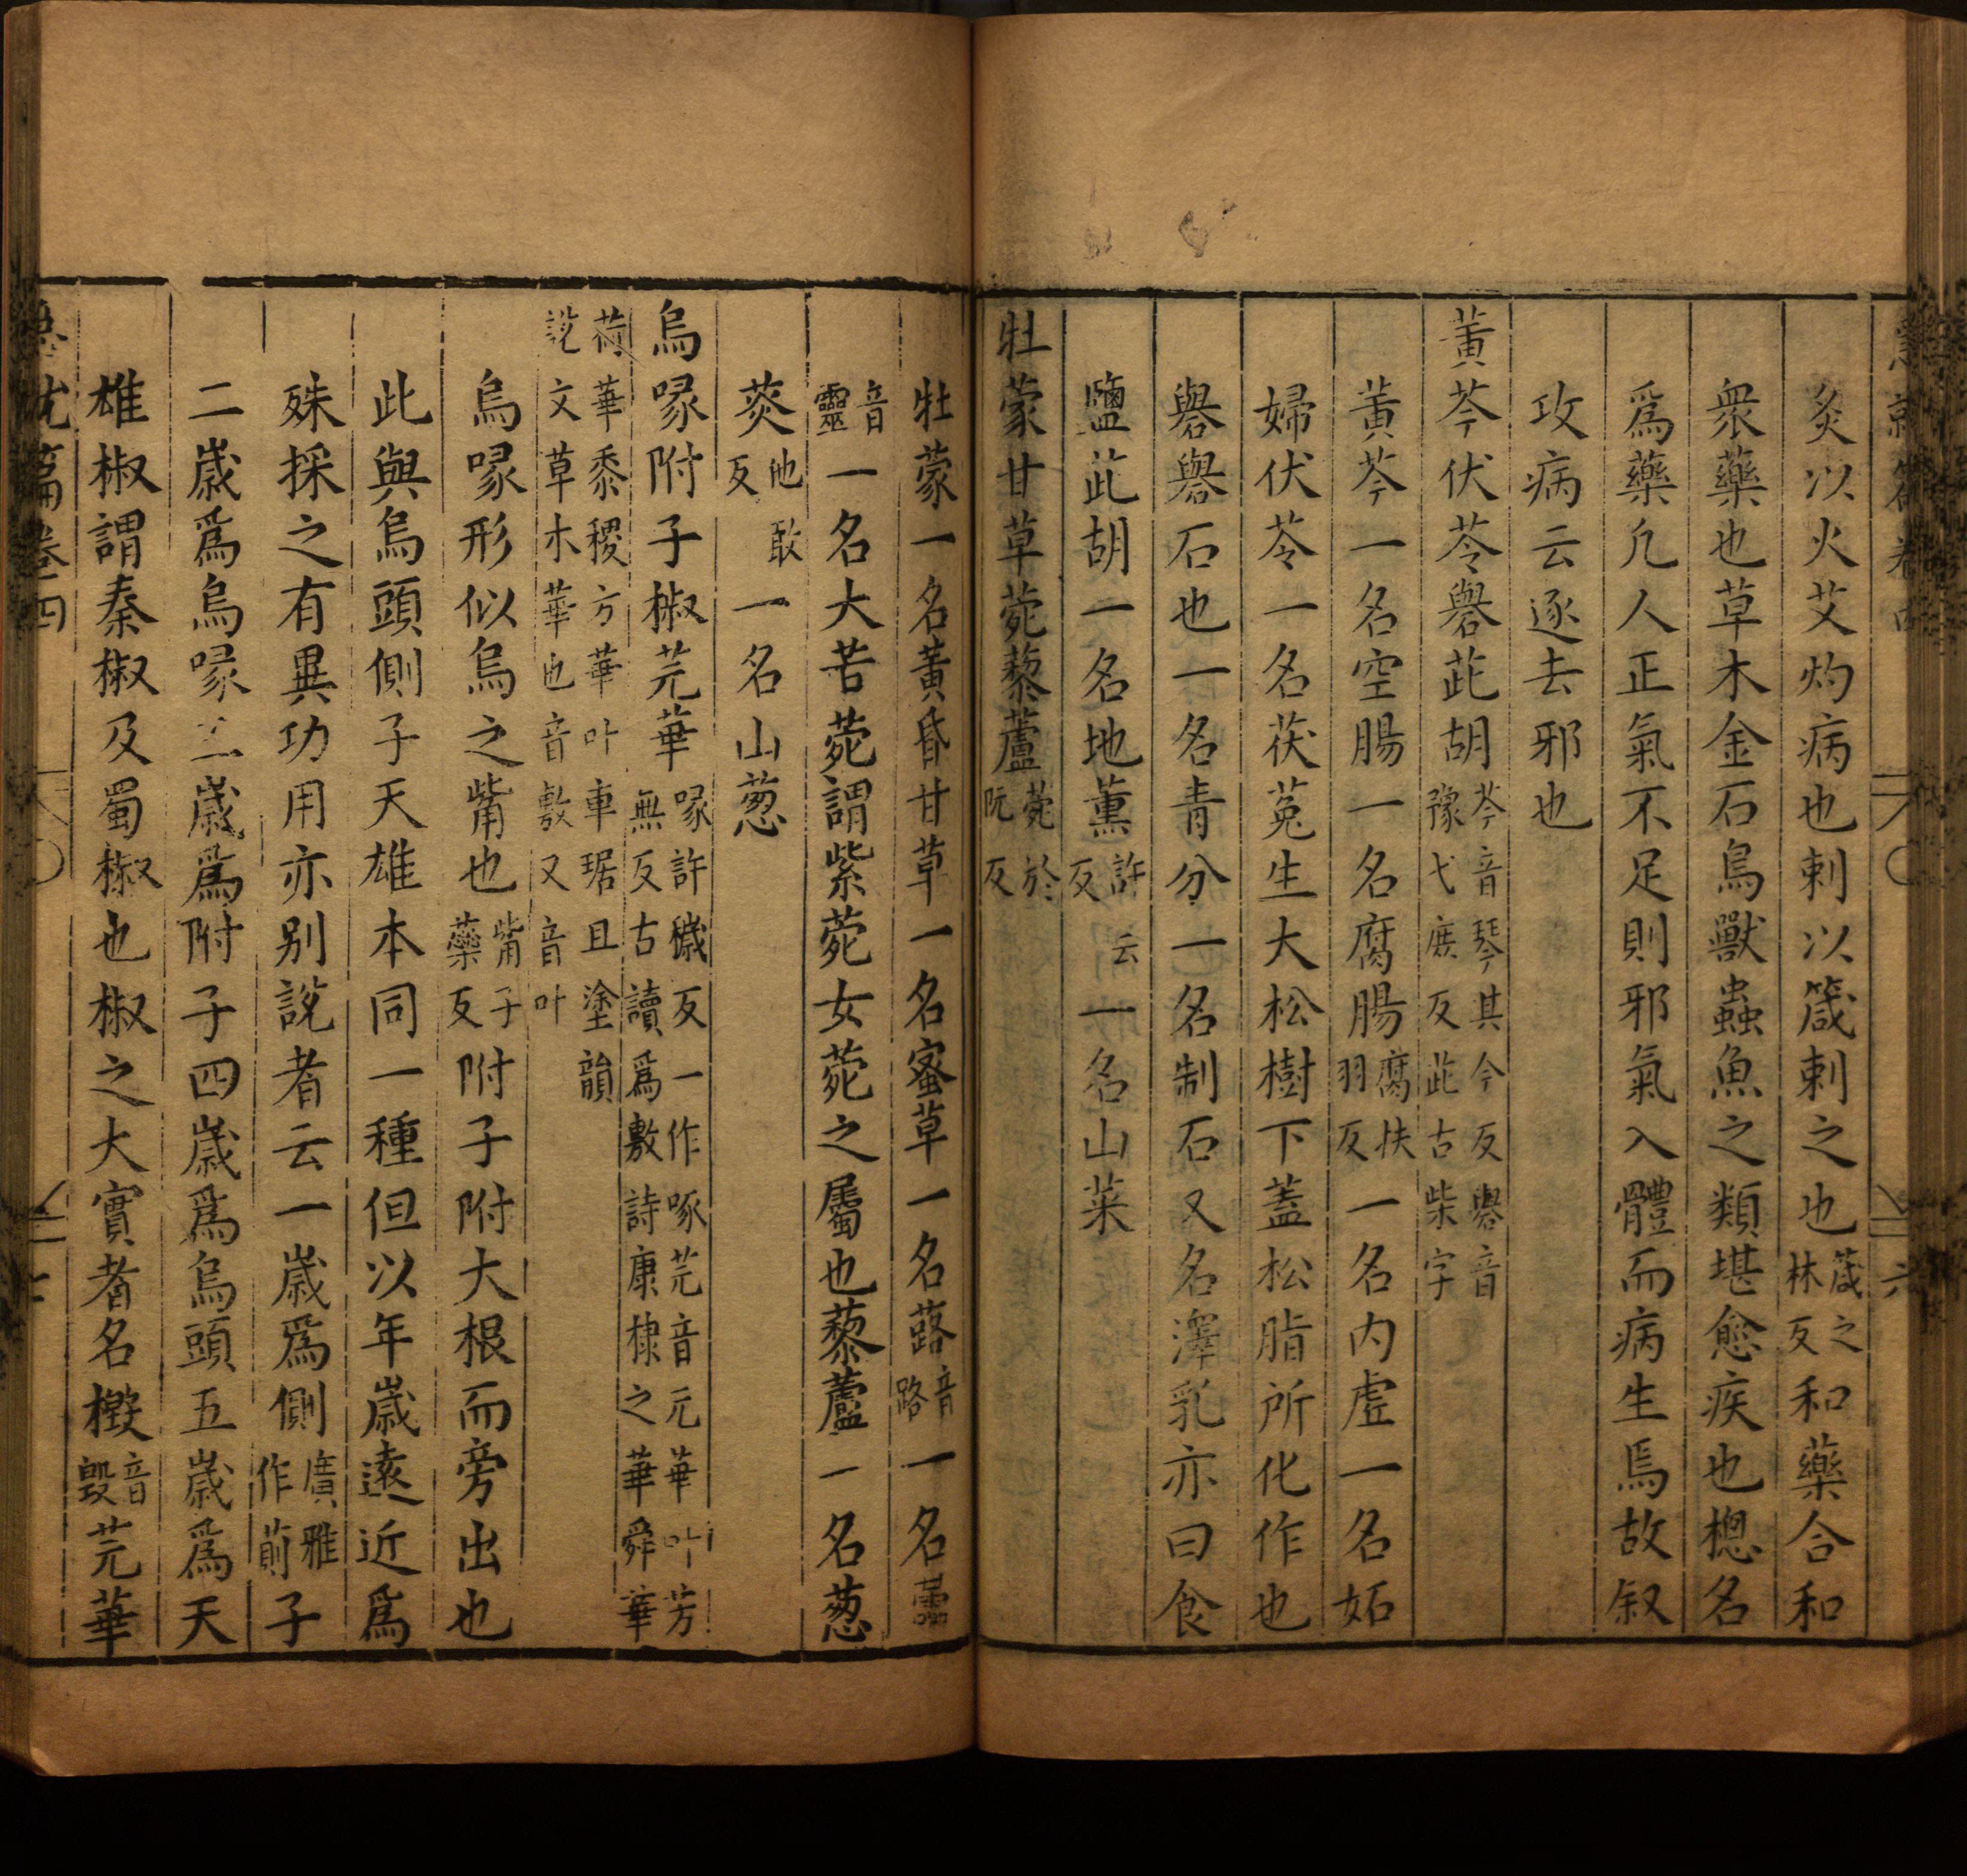 急就篇卷四 六
灸以火艾灼病也刺以箴刺之也箴之林反和藥合和
衆藥也草木金石鳥獸蟲魚之類堪愈疾也揔名
爲藥凡人正氣不足則邪氣入體而病生焉故叙
攻病云逐去邪也
黃芩伏苓礜茈胡芩音琴其今反礜音豫弋庶反茈古柴字
黃芩一名空腸一名腐腸腐扶羽反一名内虚一名妬
婦伏苓一名茯菟生大松樹下蓋松脂所化作也
礜礜石也一名青分一名制石又名澤乳亦曰食
鹽茈胡一名地薰許云反一名山菜
牡蒙甘草菀藜蘆菀於阮反
牡蒙一名黃昏甘草一名蜜草一名蕗音路一名蘦
音靈一名大苦菀謂紫菀女菀之屬也藜蘆一名葱
菼他敢反一名山葱
烏喙附子椒芫華喙許穢反一作啄芫音元華叶芳無反古讀爲敷詩康棣之華舜華
荷華黍稷方華叶車琚且塗韻說文草木華也音敷又音叶
烏喙形似烏之觜也觜子藥反附子附大根而旁出也
此與烏頭側子天雄本同一種但以年歲遠近爲
殊採之有異功用亦别說者云一歲爲側廣雅作萴子
二歲爲烏喙三歲爲附子四歲爲烏頭五歲爲天
雄椒謂秦椒及蜀椒也椒之大實者名檓音毀芫華
急就篇卷四 七